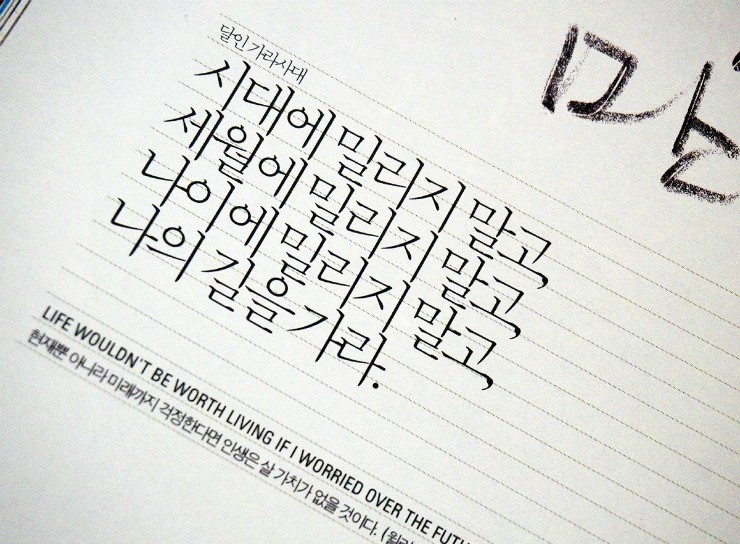 달인 가라사대
시대에 밀리지 말고
세월에 밀리지 말고
나이에 밀리지 말고
나의 길을 가라.
LIFE WOULDN'T BE WORTH LIVING IF I WORRIED OVER THE
현재뿐 아니라 미래까지 걱정한다면 인생은 살 가치가 없을 것이다.